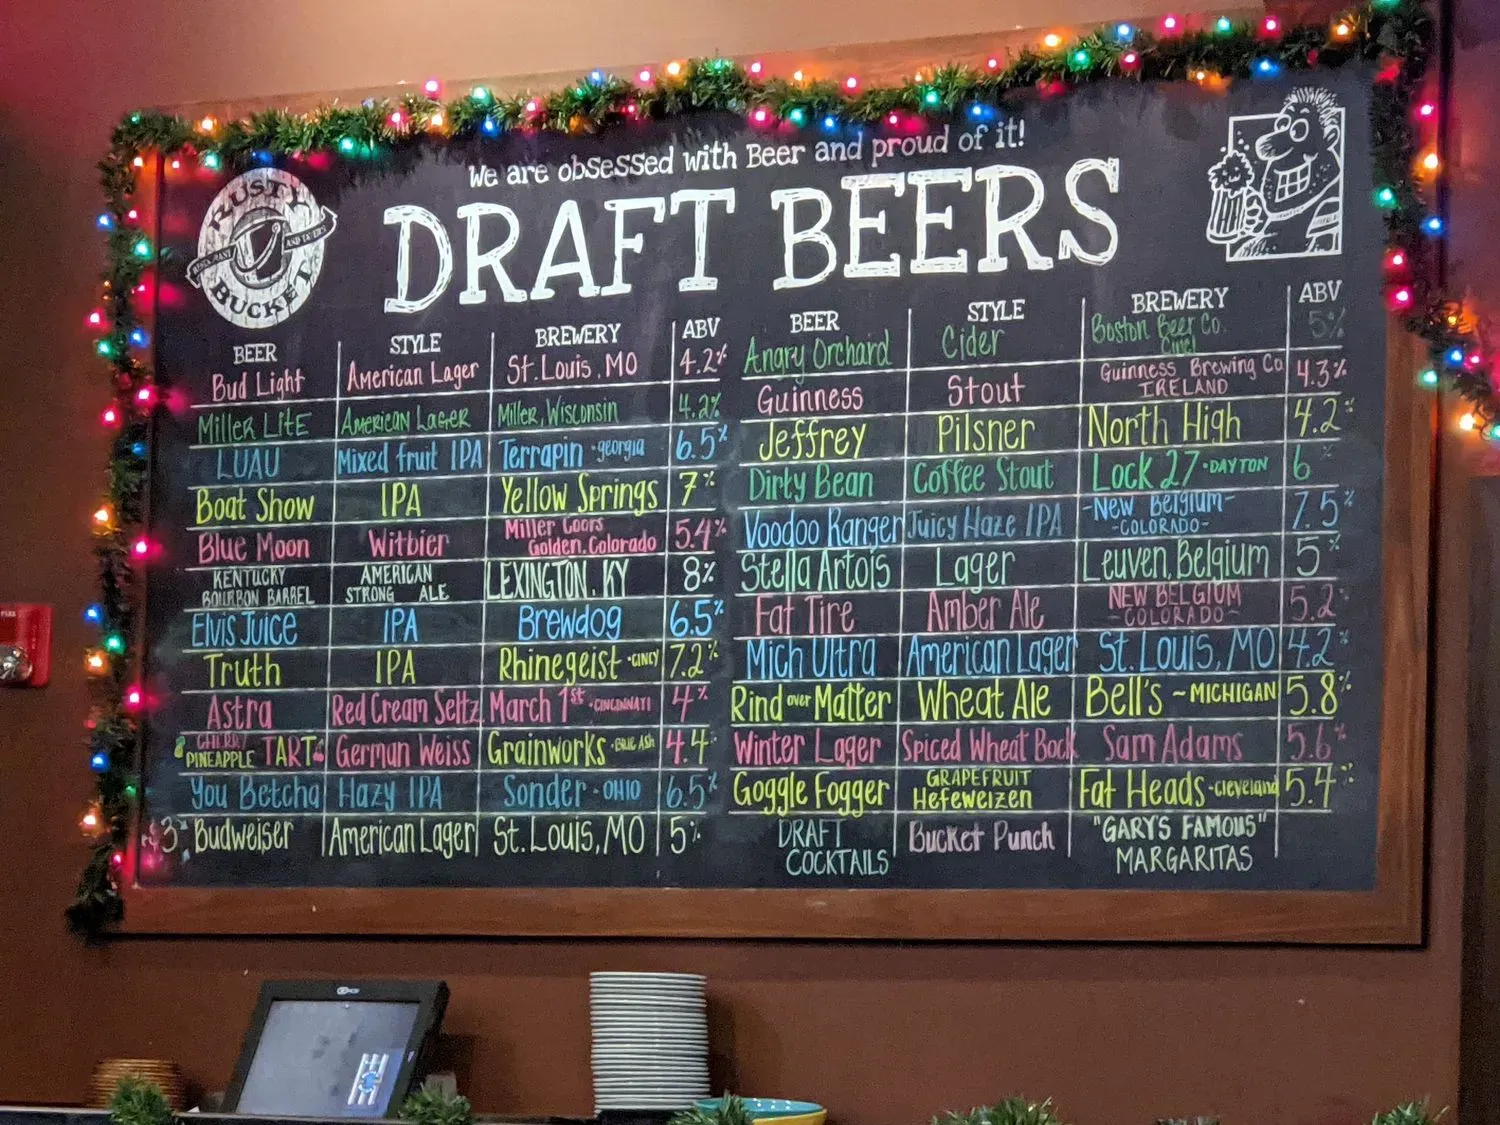 We are obsessed with Beer and proud of it!
DRAFT BEERS
RUSTY
RESTAURANT AND TAVERN
BUCKET
BEER STYLE BREWERY ABV
Bud Light American Lager St. Louis, MO 4.2%
Miller Lite American Lager Miller, Wisconsin 4.2%
LUAU Mixed fruit IPA Terrapin - georgia 6.5%
Boat Show IPA Yellow Springs 7%
Blue Moon Witbier Miller Coors Golden, Colorado 5.4%
KENTUCKY BOURBON BARREL AMERICAN STRONG ALE LEXINGTON, KY 8%
Elvis Juice IPA Brewdog 6.5%
Truth IPA Rhinegeist - CINCY 7.2%
Astra Red Cream Seltz March 1st - CINCINNATI 4%
CHERRY PINEAPPLE TART German Weiss Grainworks - BLUE ASH 4.4%
You Betcha Hazy IPA Sonder - OHIO 6.5%
Budweiser American Lager St. Louis, MO 5%
BEER STYLE BREWERY ABV
Angry Orchard Cider Boston Beer Co. Cinci 5%
Guinness Stout Guinness Brewing Co IRELAND 4.3%
Jeffrey Pilsner North High 4.2%
Dirty Bean Coffee Stout Lock 27 - DAYTON 6%
Voodoo Ranger Juicy Haze IPA -New Belgium- -COLORADO- 7.5%
Stella Artois Lager Leuven, Belgium 5%
Fat Tire Amber Ale NEW BELGIUM -COLORADO- 5.2%
Mich Ultra American Lager St. Louis, MO 4.2%
Rind over Matter Wheat Ale Bell's ~ MICHIGAN 5.8%
Winter Lager Spiced Wheat Bock Sam Adams 5.6%
Goggle Fogger GRAPEFRUIT HEFEWEIZEN Fat Heads - Cleveland 5.4%
DRAFT COCKTAILS Bucket Punch "GARYS FAMOUS" MARGARITAS